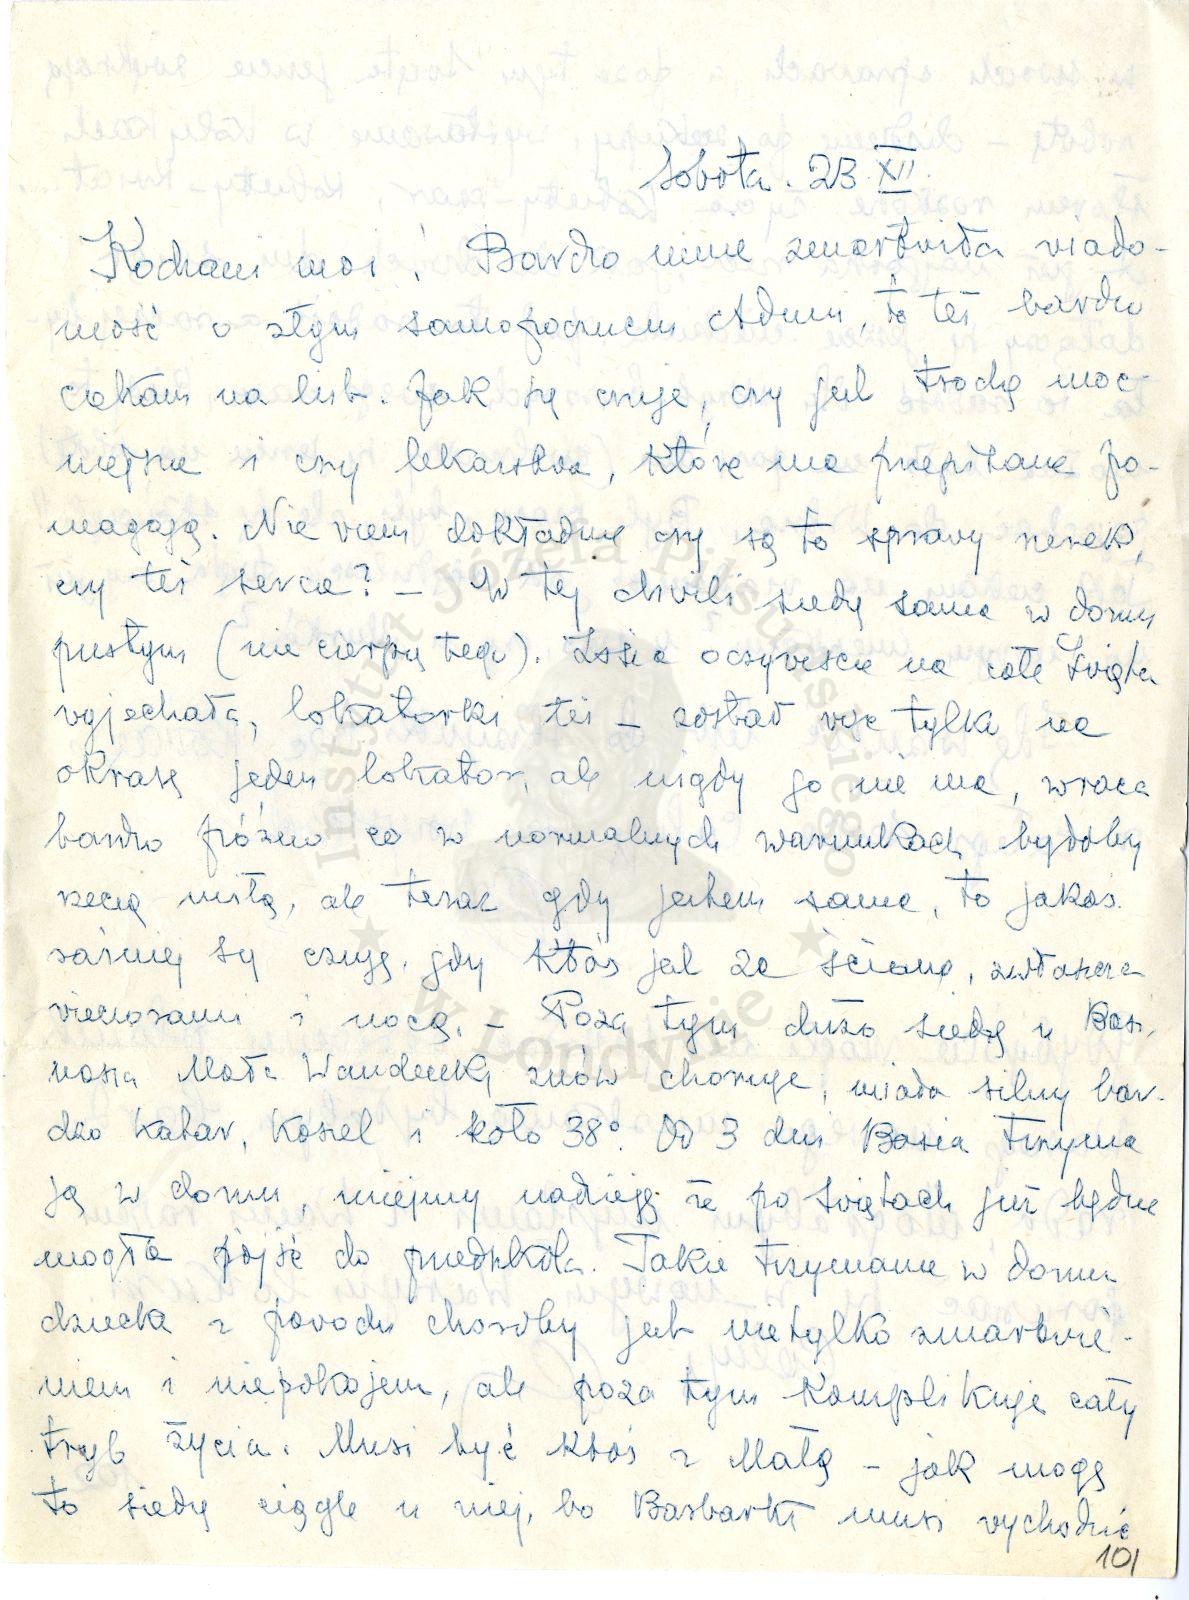 Sobota. 23 XII.
Kochani moi! Bardzo mnie zmartwiła wiado-
mość o złym samopoczuciu Aduni, to też bardzo
czekam na list. Jak się czuje, czy jest trochę moc-
niejsza i czy lekarstwa, które ma przepisane po-
magają. Nie wiem dokładnie czy są to sprawy nerek,
czy też serca? – W tej chwili siedzę sama w domu
pustym (nie cierpię tego). Zosia oczywiście na całe Święta
wyjechała, lokatorki też – został więc tylko na
okrasę jeden lokator, ale nigdy go nie ma, wraca
bardzo późno co w normalnych warunkach byłoby
rzeczą miłą, ale teraz gdy jestem sama, to jakoś
raźniej się czuję, gdy ktoś jest za ścianą, zwłaszcza
wieczorami i nocą. – Poza tym dużo siedzę u Basi,
nasza Mała Wandeczka znów choruje, miała silny bar-
dzo katar, kaszel i koło 38°. Od 3 dni Basia trzyma
ją w domu, miejmy nadzieję że po świętach już będzie
mogła pójść do przedszkola. Takie trzymanie w domu
dziecka z powodu choroby jest nietylko zmartwie-
niem i niepokojem, ale poza tym komplikuje cały
tryb życia. Musi być ktoś z Małą – jak mogę
to siedzę ciągle u niej, bo Basbarki musi wychodzić
101
Instytut Józefa Piłsudskiego
w Londynie